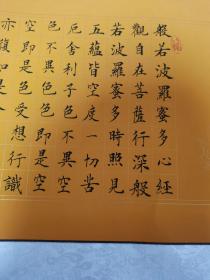 般若波羅蜜多心經
觀自在菩薩行深般
若波羅蜜多時照見
五蘊皆空度一切苦
厄舍利子色不異空
空不異色色即是空
空即是色受想行識
亦復如是舍